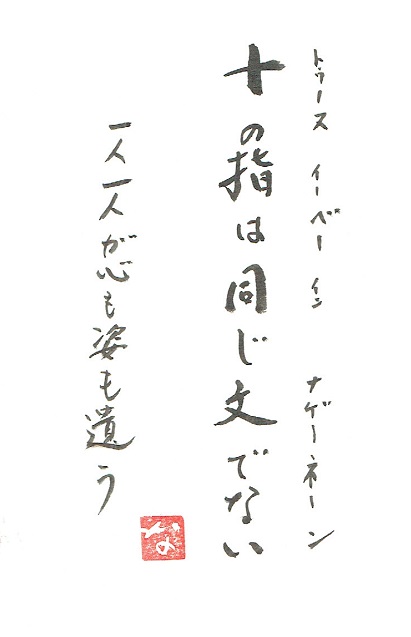 トゥーヌ イーベー イン ナゲーネーン
十の指は同じ文でない
一人一人が心も姿も遺う
な